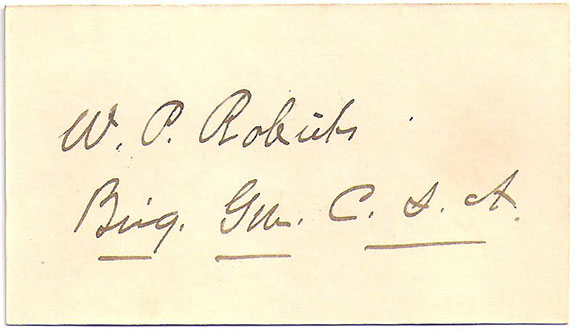 W. P. Roberts
Brig. Gen. C. S. A.